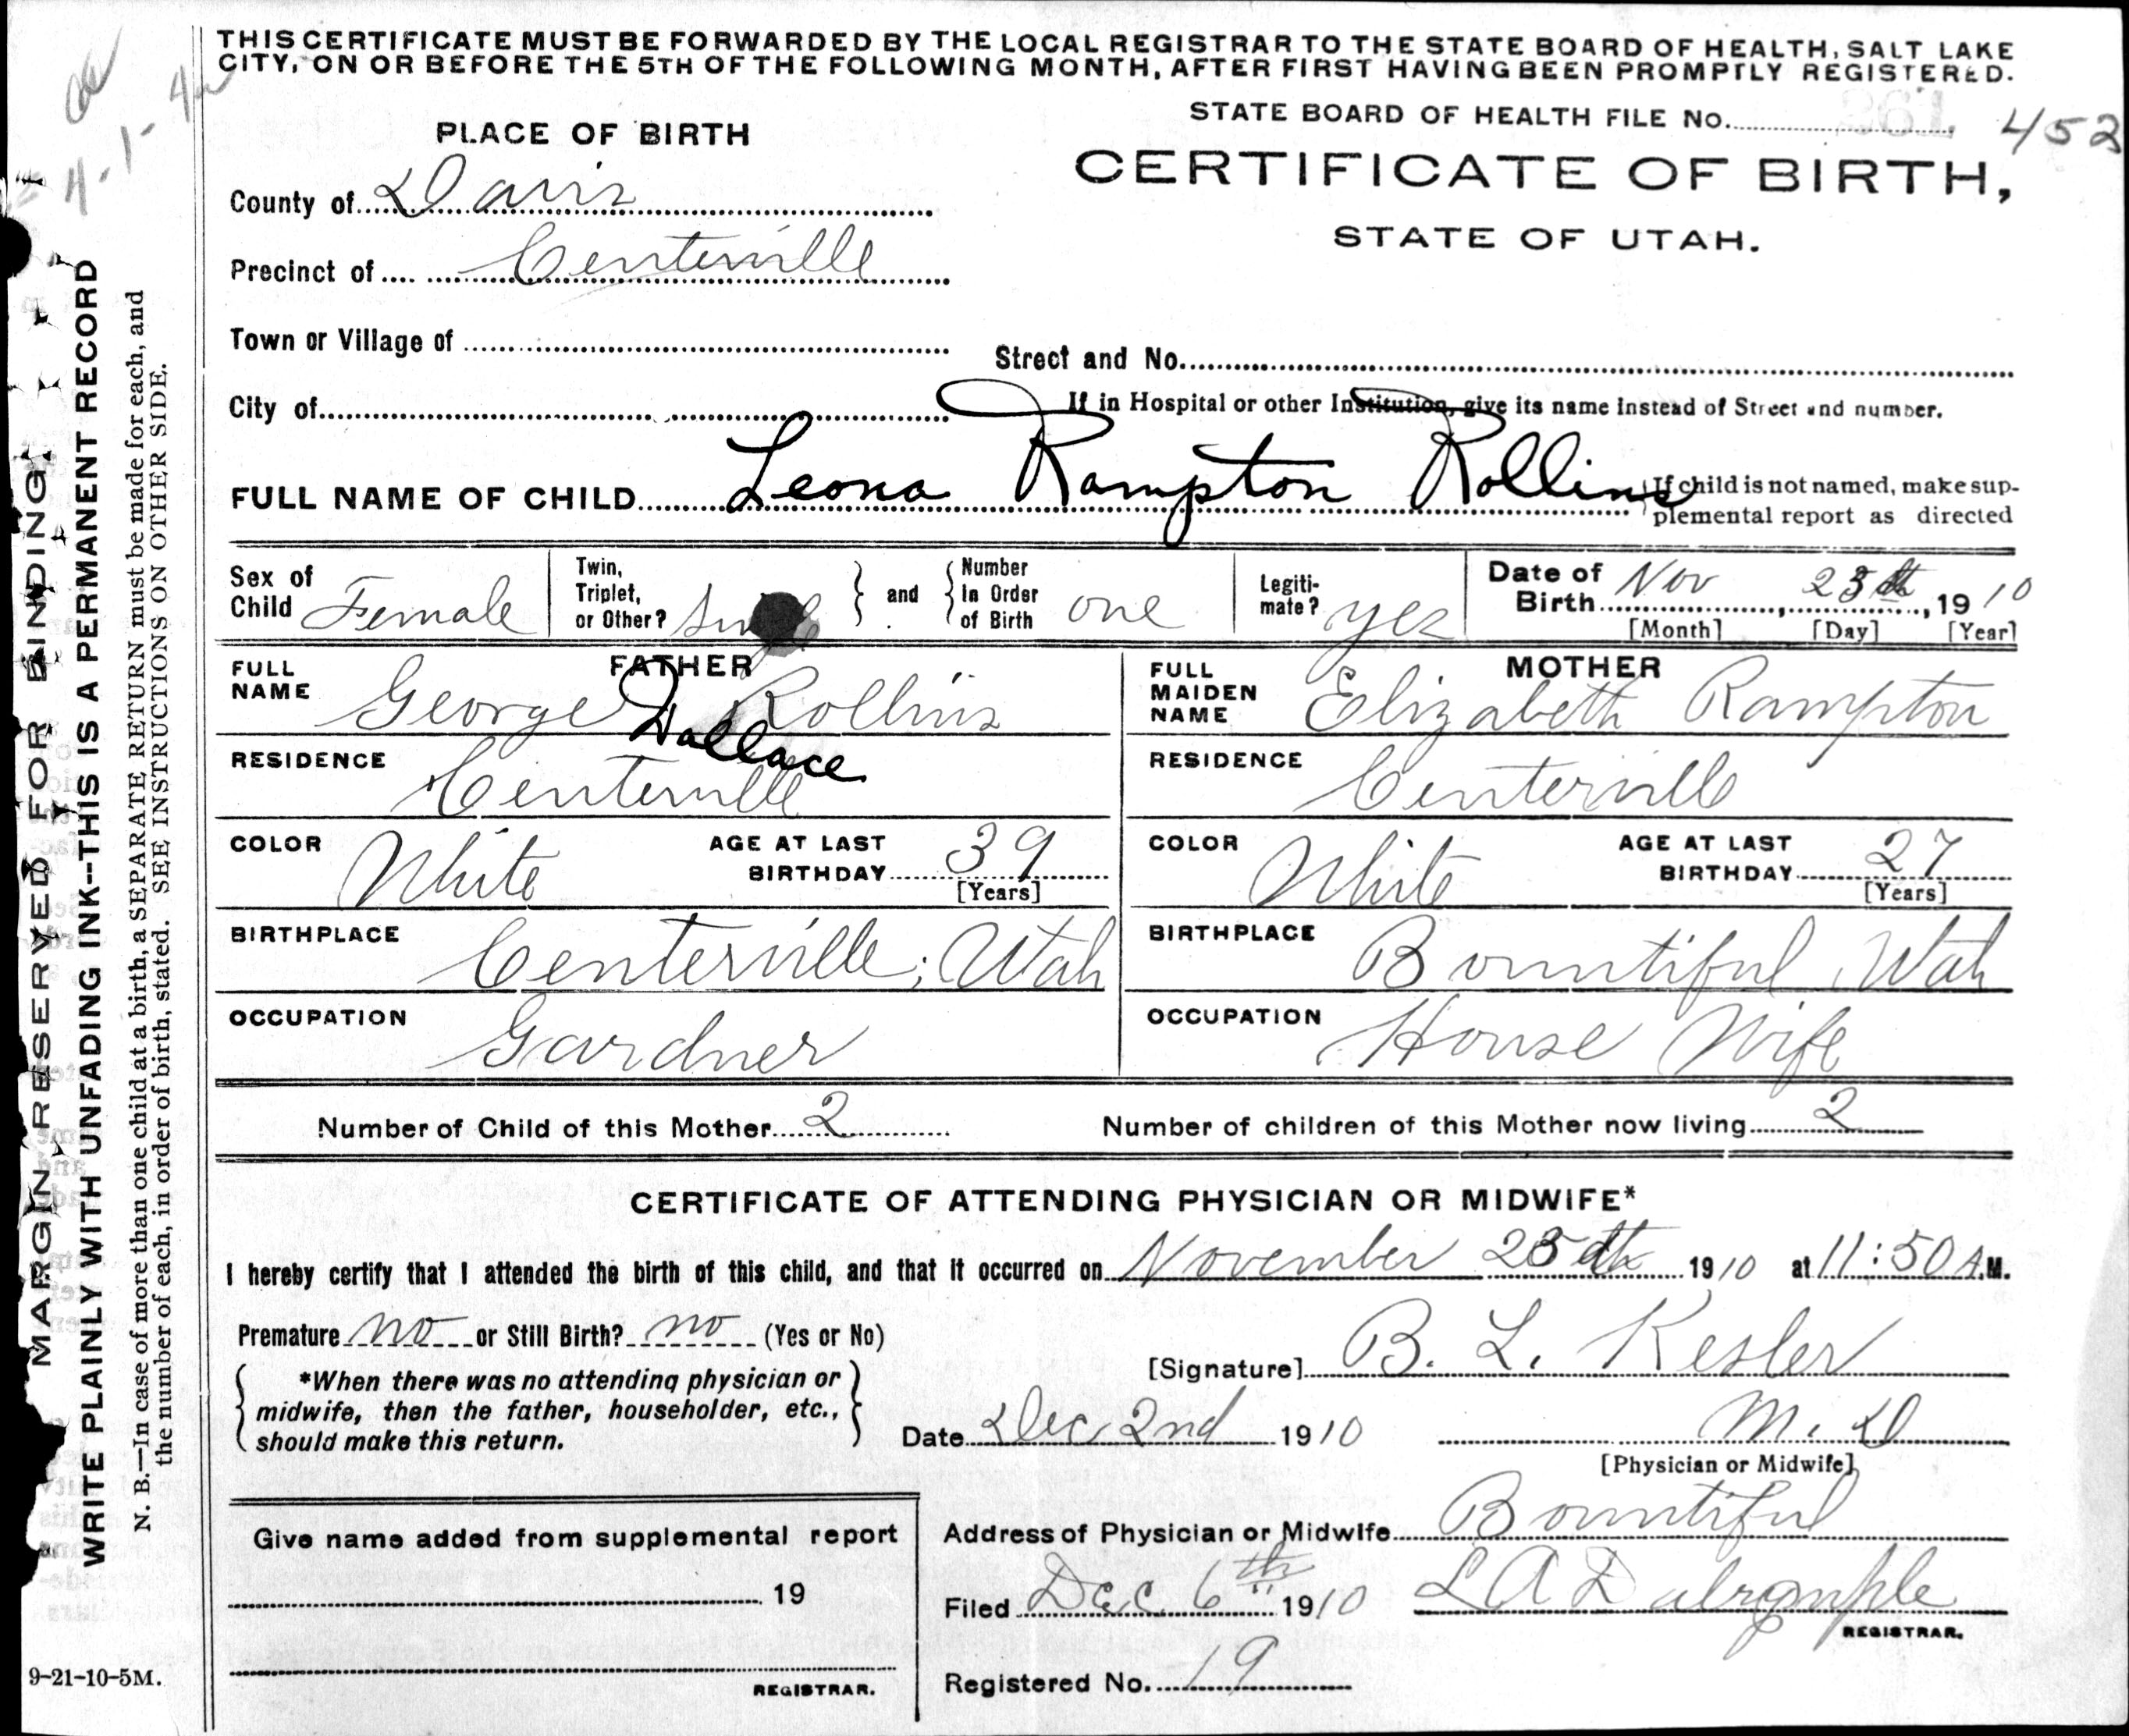 THIS CERTIFICATE MUST BE FORWARDED BY THE LOCAL REGISTRAR TO THE STATE BOARD OF HEALTH, SALT LAKE
CITY, ON OR BEFORE THE 5TH OF THE FOLLOWING MONTH, AFTER FIRST HAVING BEEN PROMPTLY REGISTERED.
STATE BOARD OF HEALTH FILE No. 452
PLACE OF BIRTH
CERTIFICATE OF BIRTH,
STATE OF UTAH.
County of Davis
Precinct of Centerville
Town or Village of
Street and No.
City of
If in Hospital or other Institution, give its name instead of Street and number.
FULL NAME OF CHILD Leona Rampton Rollins
If child is not named, make sup-
plemental report as directed
Sex of Child Female
Twin, Triplet, or Other?
and
Number In Order of Birth one
Legiti-mate? yes
Date of Birth Nov , 19 10
[Month] [Day] [Year]
FATHER
FULL NAME George Wallace Rollins
RESIDENCE Centerville
COLOR White AGE AT LAST BIRTHDAY 39 [Years]
BIRTHPLACE Centerville, Utah
OCCUPATION Gardner
MOTHER
FULL MAIDEN NAME Elizabeth Rampton
RESIDENCE Centerville
COLOR White AGE AT LAST BIRTHDAY 27 [Years]
BIRTHPLACE Bountiful, Utah
OCCUPATION House Wife
Number of Child of this Mother 2
Number of children of this Mother now living 2
CERTIFICATE OF ATTENDING PHYSICIAN OR MIDWIFE*
I hereby certify that I attended the birth of this child, and that it occurred on November 1910 at 11:50 A.M.
Premature no or Still Birth? no (Yes or No)
[Signature] B. L. Kesler
*When there was no attending physician or
midwife, then the father, householder, etc.,
should make this return.
Date Dec 2nd 1910
M. D
[Physician or Midwife]
Address of Physician or Midwife Bountiful
Filed Dec 6th 1910 L A Dalrymple
REGISTRAR.
Registered No. 19
Give name added from supplemental report
19
REGISTRAR.
9-21-10-5M.
MARGIN RESERVED FOR BINDING
WRITE PLAINLY WITH UNFADING INK--THIS IS A PERMANENT RECORD
N. B.—In case of more than one child at a birth, a SEPARATE RETURN must be made for each, and
the number of each, in order of birth, stated. SEE INSTRUCTIONS ON OTHER SIDE.